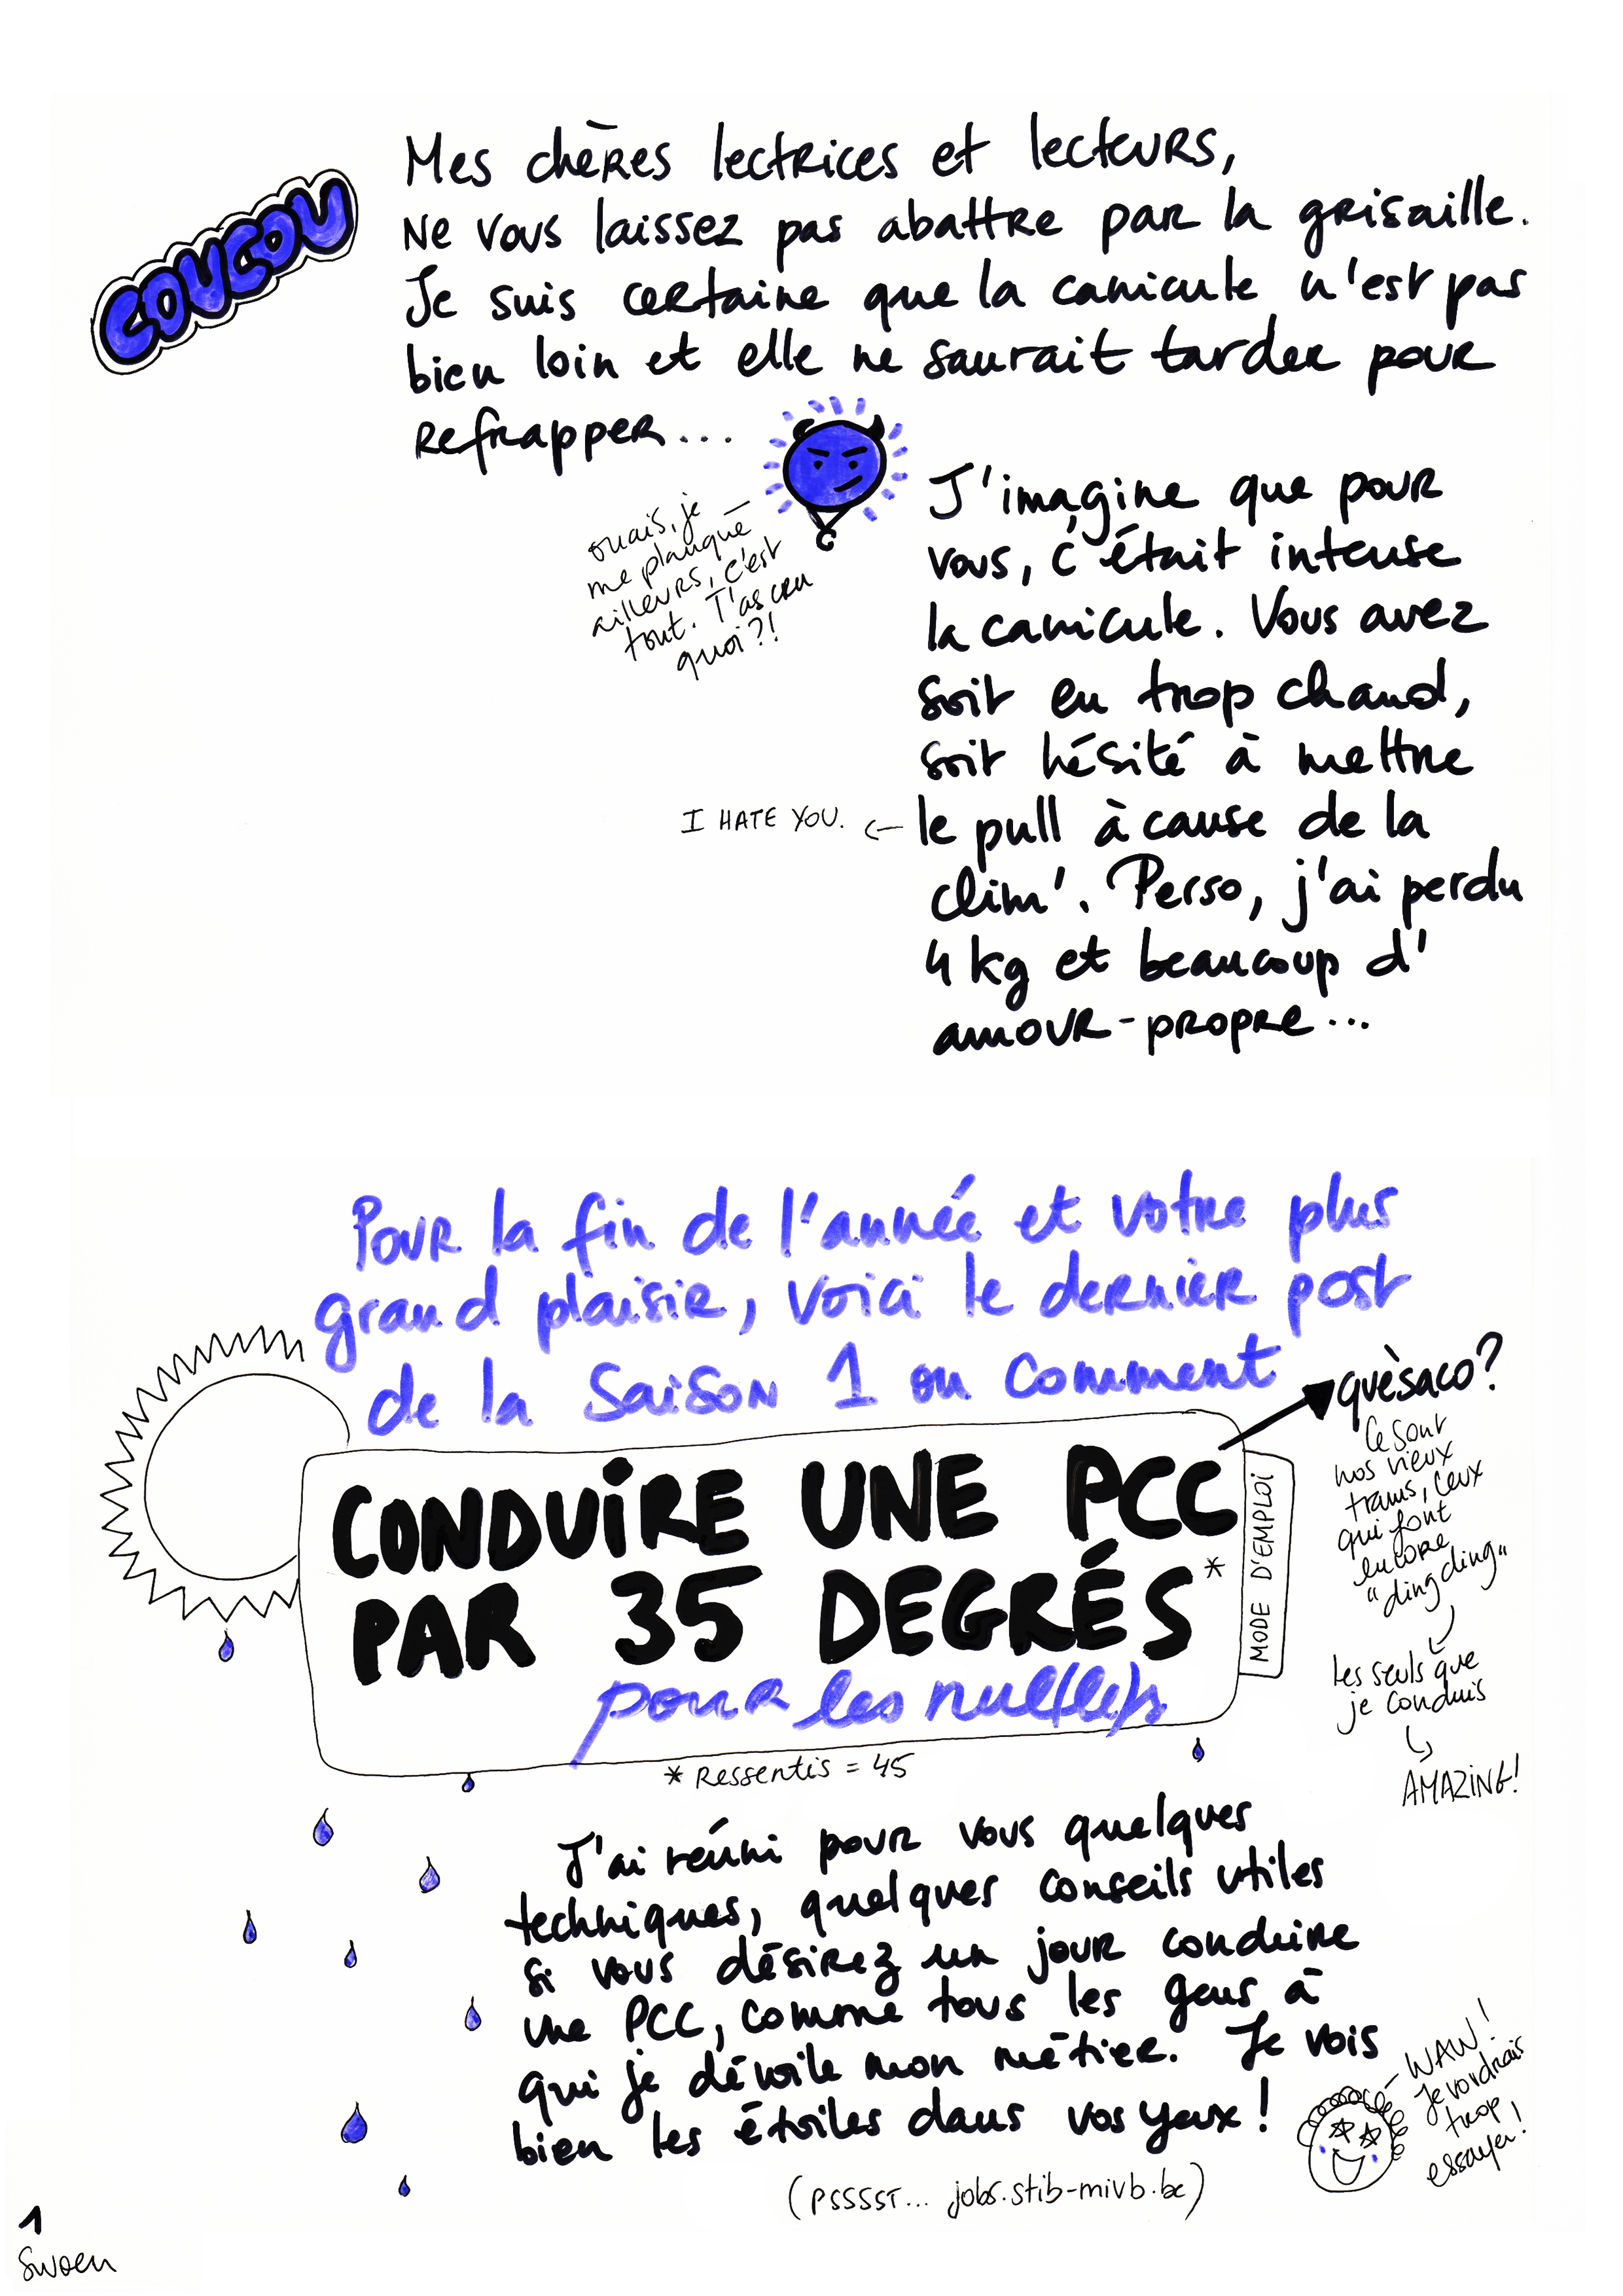 COUCOU
Mes chères lectrices et lecteurs,
Ne vous laissez pas abattre par la grisaille.
Je suis certaine que la canicule n'est pas
bien loin et elle ne saurait tarder pour
refrapper...
ouais, je
me planque
ailleurs, c'est
tout. T'as cru
quoi?!
J'imagine que pour
vous, c'était intense
la canicule. Vous avez
soit eu trop chaud,
soit hésité à mettre
le pull à cause de la
clim'. Perso, j'ai perdu
4 kg et beaucoup d'
amour-propre...
I HATE YOU.
Pour la fin de l'année et votre plus
grand plaisir, voici le dernier post
de la Saison 1 ou comment
CONDUIRE UNE PCC
PAR 35 DEGRÉS*
pour les nul(le)s
MODE D'EMPLOI
* Ressentis = 45
quèsaco?
Ce sont
nos vieux
trams, ceux
qui font
encore
"ding ding"
les seuls que
je conduis
AMAZING!
J'ai réuni pour vous quelques
techniques, quelques conseils utiles
si vous désirez un jour conduire
une PCC, comme tous les gens à
qui je dévoile mon métier. Je vois
bien les étoiles dans vos yeux!
WAW!
Je voudrais
trop
essayer!
(PSSSST... jobs.stib-mivb.be)
1
Swoen